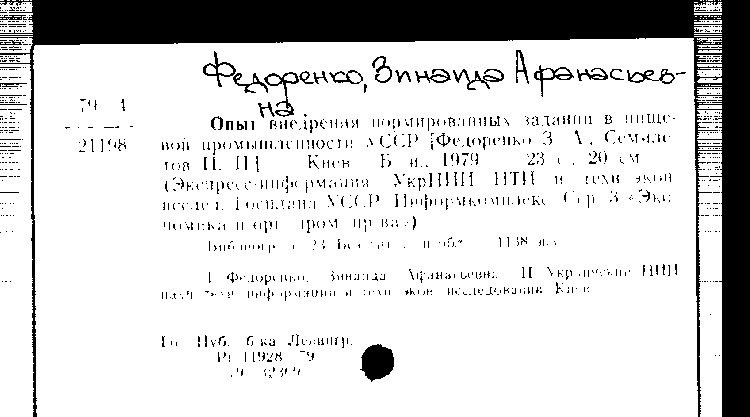 Федоренко, Зинаида Афанасьев-
на
79-4
21198
Опыт внедрения нормированных заданий в пище-
вой промышленности УССР [Федоренко З. А., Семиле-
тов П. П.] Киев Б. и., 1979 23 с., 20 см
(Экспресс-информация УкрНИИ НТИ и техн экон
исслед. Госплана УССР. Информкомплекс. Сер. 3 «Эко
номика и орг пром пр-ва»)
Библиогр. с. 23 1138 экз.
I Федоренко, Зинаида Афанасьевна II Украинский НИИ
науч техн информации и техн экон исследования Киев
Гос Публ. б-ка Ленингр.
11928 79